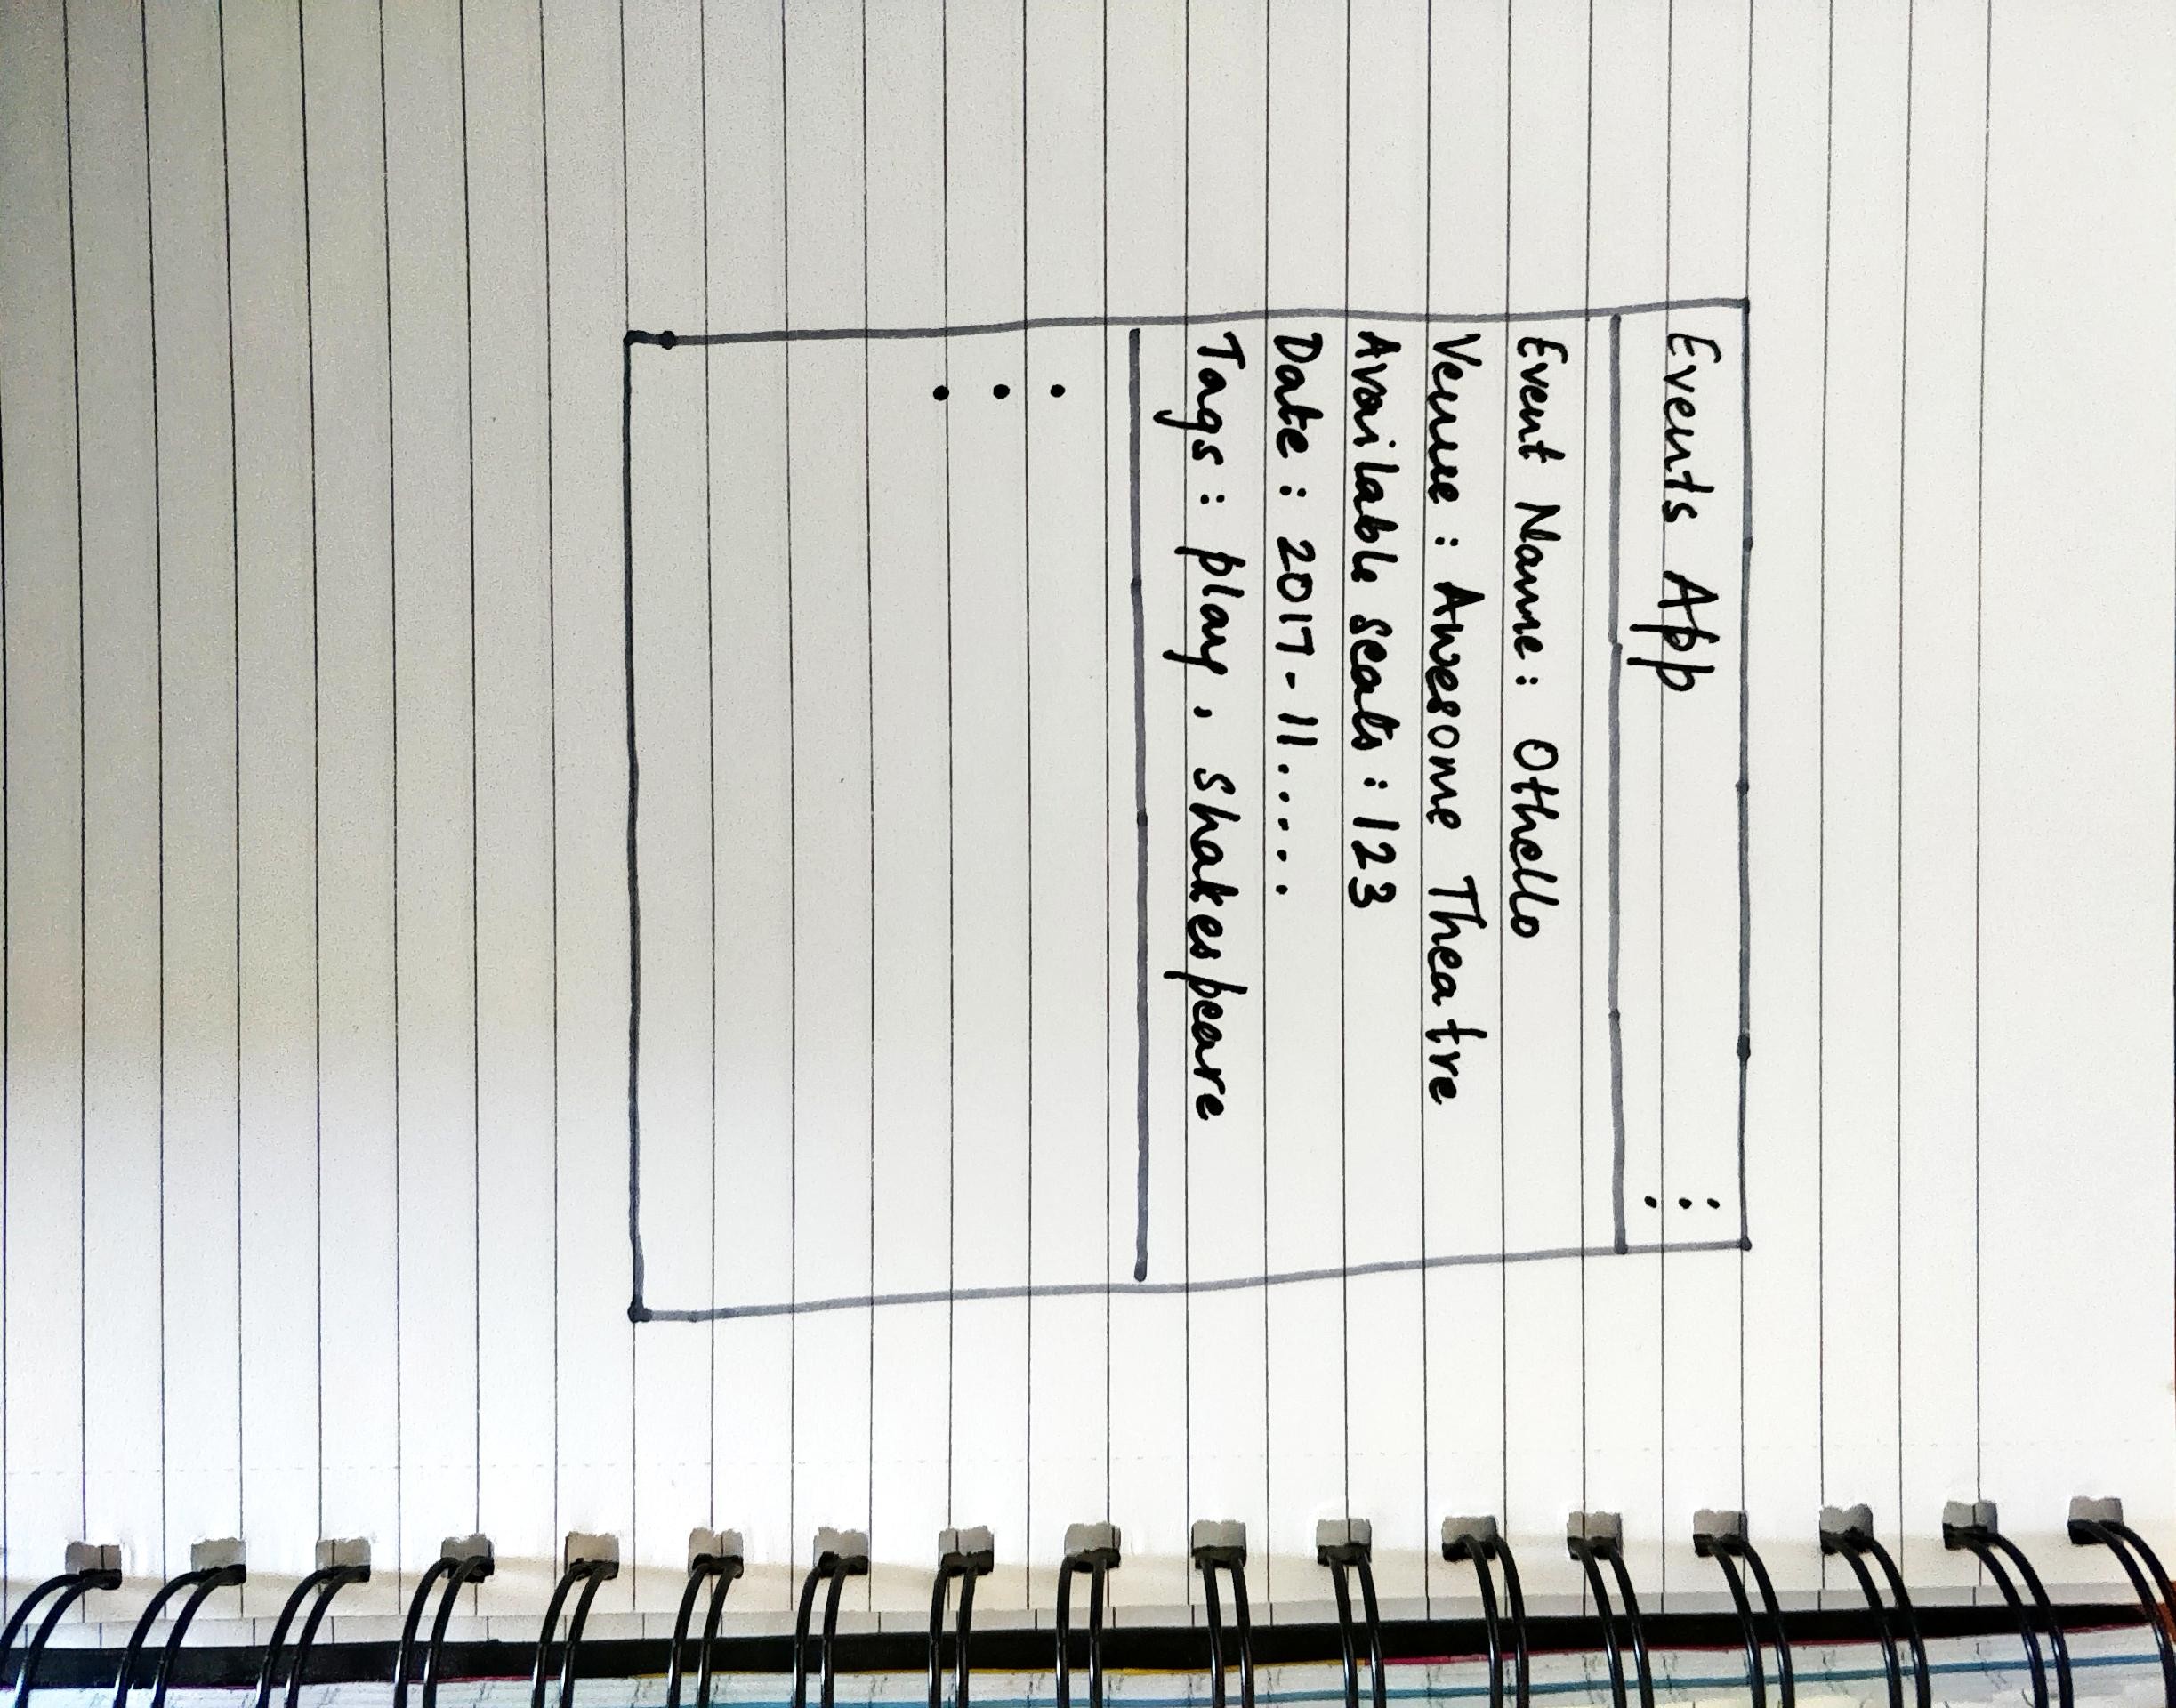 Events App
Event Name: Othello
Venue : Awesome Theatre
Available seats : 123
Date : 2017-11.....
Tags : play, shakespeare